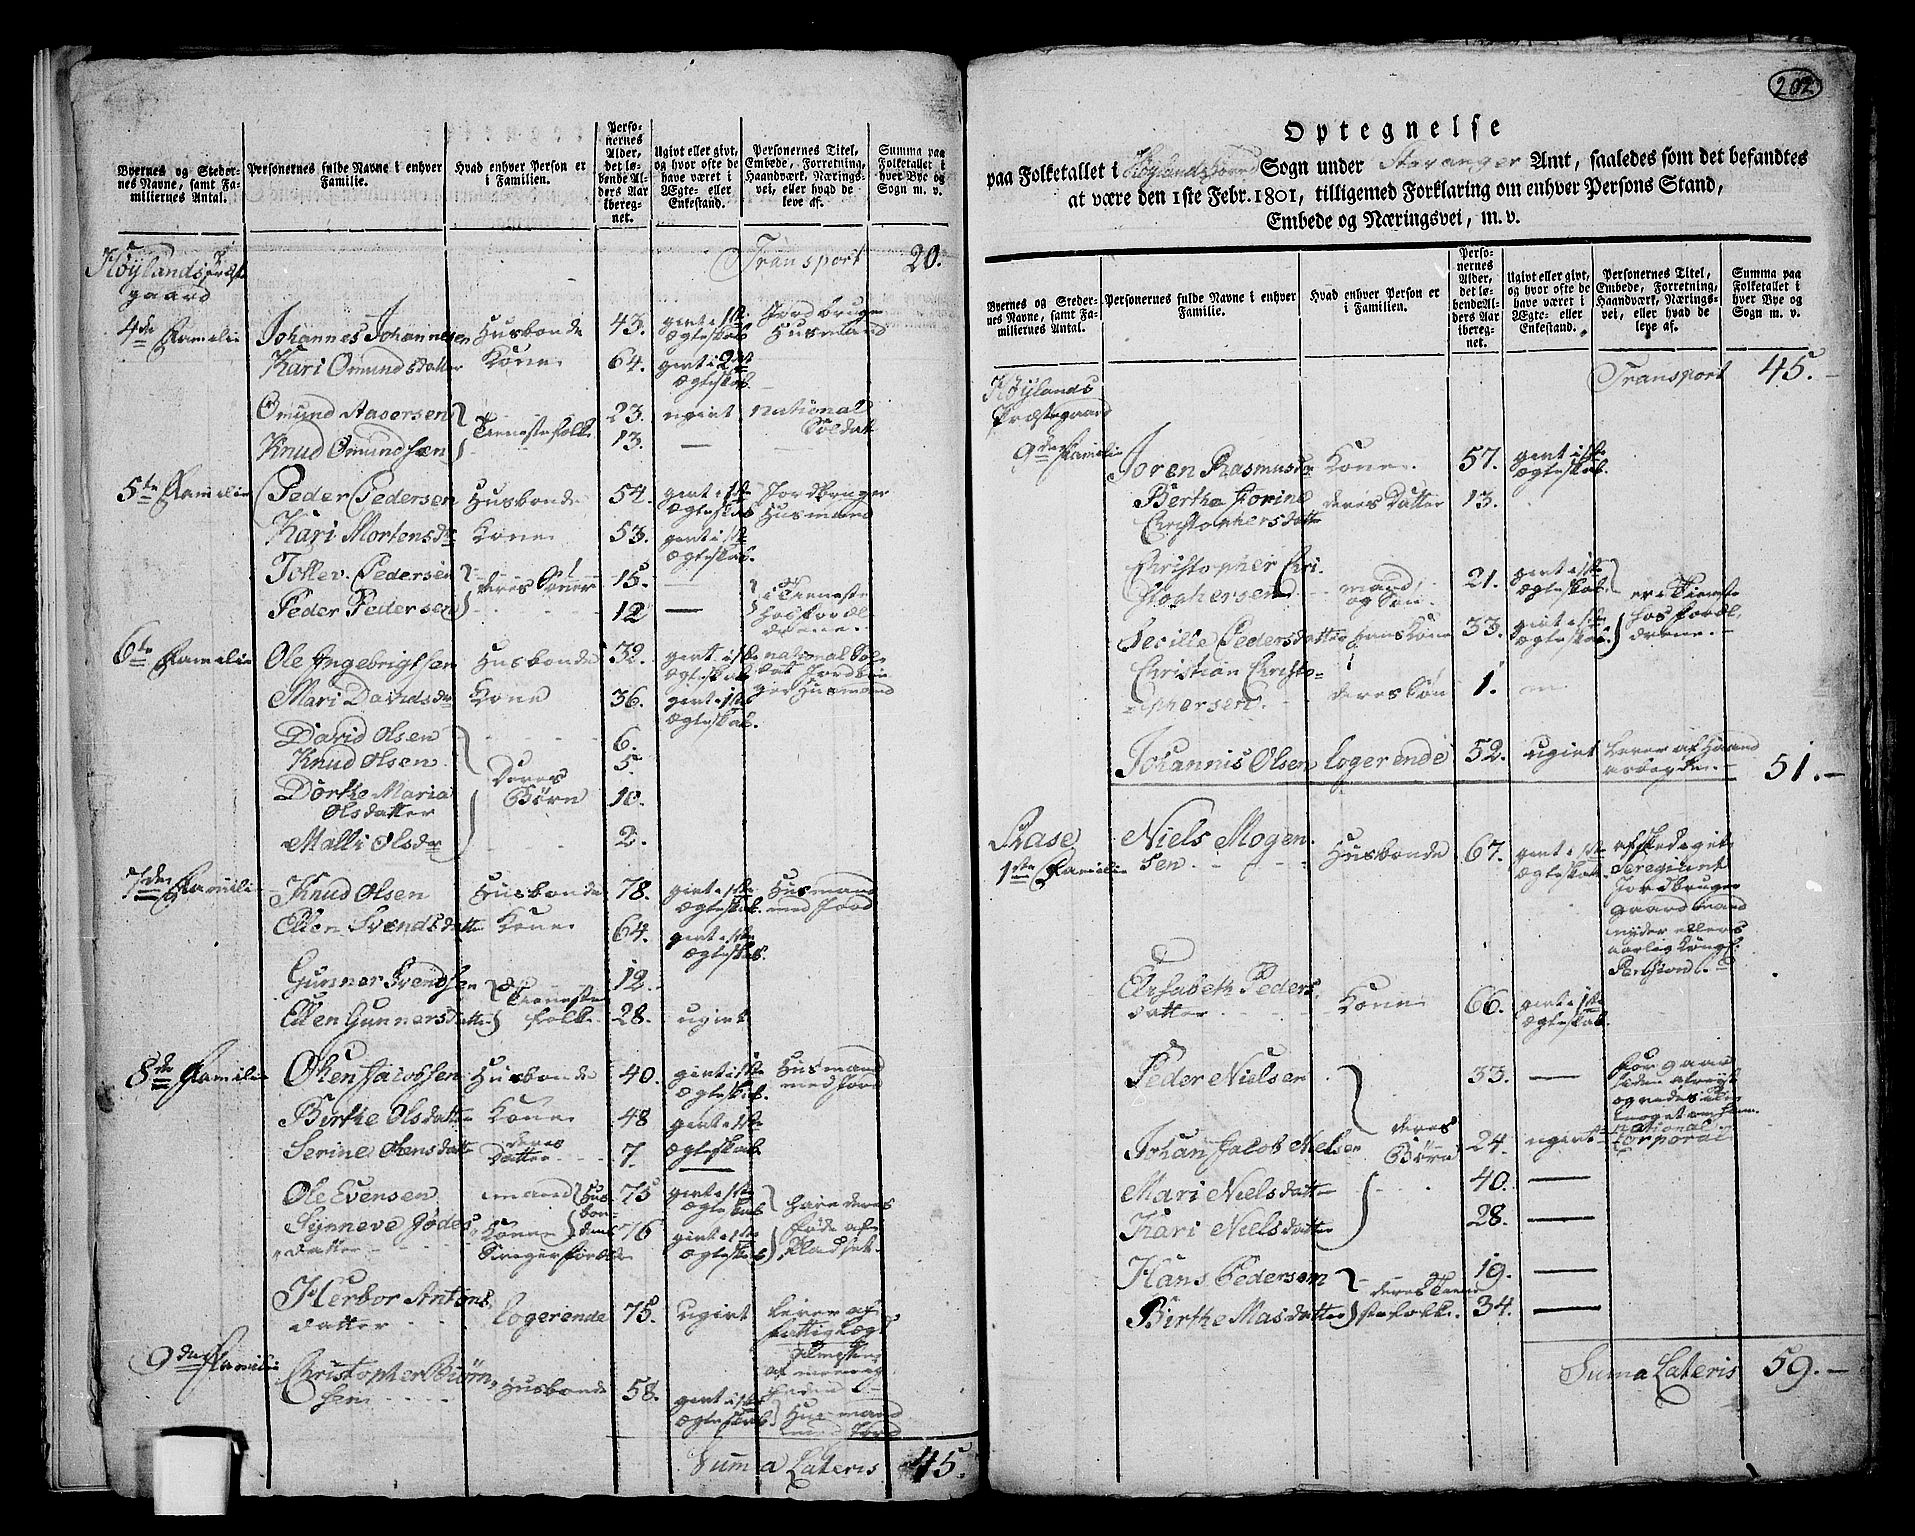 Byernes og Steder-
nes Navne, samt Fa-
miliernes Antal.
Personernes fulde Navne i enhver
Familie.
Hvad enhver Person er
i Familien.
Perso-
nernes
Alder,
det lø-
bende Al-
ders Aar
iberegnet.
Ugivt eller givt,
og hvor ofte de
have været i
Ægte- eller
Enkestand.
Personernes Titel,
Embede, Forretning,
Haandværk, Nærings-
vei, eller hvad de
leve af.
Summa paa
Folketallet i
hver Bye og
Sogn m. v.
Høylands Præste
gaard
Transport 20.
4de Familie Johannes Johannesen Husbonde 43. givt i 1ste Ægteskab Jordbruger Husmand
Kari Omundsdatter Kone 64. givt i 2det Ægteskab
Omund Aadersen 23. ugivt national Soldat
Tienestefolk
Knud Omundsen 13. —
5te Familie Peder Pedersen Husbonde 54. givt i 1ste Ægteskab Jordbruger Husmand
Kari Mortensdr Kone 53. givt i 1ste Ægteskab
Tollev Pedersen deres Sønner 15. — i Tieneste
Peder Pedersen 12 — hos Forældrene
6te Familie Ole Ingebrigtsen Husbonde 32. givt i 1ste Ægteskab national Soldat Jordbruger Husmand
Mari Davidsdr Kone 36. givt i 1ste Ægteskab
David Olsen 6.
Knud Olsen 5.
Deres Børn
Dorthe Maria
Olsdatter 10.
Malli Olsdr 2.
7de Familie Knud Olsen Husbonde 78. givt i 1ste Ægteskab Husmand med Jord
Ellen Svendsdatter Kone 64. givt i 1ste Ægteskab
Gunner Svendsen Tieneste 12.
Ellen Gunnersdatter folk 28. ugivt
8de Familie Oken Jacobsen Husbonde 40. givt i 1ste Ægteskab Husmand med Jord
Birthe Olsdatter Kone 48 givt i 1ste Ægteskab
Serine Okensdatter deres Datter 7. —
Ole Evensen mand 75 givt i 1ste Ægteskab have deres
Synneve Gødes
datter Kone 76 givt i 1ste Ægteskab føde af Pladset
Husbondens Svigerforældre
Herbor Antons
datter Logerende 75. ugivt lever af
9de Familie Christopher Biørn
sen Husbonde 58. givt i 1ste Ægteskab Husmand med Jord
Summa Lateris 45.
202
Optegnelse
paa Folketallet i Høylands Sogn under Stavanger Amt, saaledes som det befandtes
at være den 1ste Febr. 1801, tilligemed Forklaring om enhver Persons Stand,
Embede og Næringsvei, m. v.
Byernes og Steder-
nes Navne, samt Fa-
miliernes Antal.
Personernes fulde Navne i enhver
Familie.
Hvad enhver Person er
i Familien.
Perso-
nernes
Alder,
det lø-
bende Al-
ders Aar
iberegnet.
Ugivt eller givt,
og hvor ofte de
have været i
Ægte- eller
Enkestand.
Personernes Titel,
Embede, Forretning,
Haandværk, Nærings-
vei, eller hvad de
leve af.
Summa paa
Folketallet i
hver Bye og
Sogn m. v.
Transport 45.
Høylands
Præstegaard
9de Familie Joren Rasmusdr Kone 57. givt i 1ste Ægteskab
Berthe Torine
Christophersdatter deres Datter 13.
Christopher Chri
stophersen mand og Søn 21. givt i 1ste Ægteskab er i Tieneste
Secille Pedersdatter hans Kone 33. givt i 1ste Ægteskab hos Forældrene
Christian Christo-
phersen deres Søn 1.
Johannis Olsen Logerende 52. ugivt lever af Haand
arbeyde 51.
Skase
1ste Familie Niels Mogen
sen Husbonde 67. givt i 1ste Ægteskab afskediget
Jordbruger
gaardmand
nyder ellers
aarlig Kongl
Pension
Elisabeth Peders
datter Kone 66. givt i 1ste Ægteskab
Peder Nielsen 33. —
deres Børn
Johan Jacob Nielsen 24. ugivt national Corporal
Mari Nielsdatter 40. —
Kari Nielsdatter 28. —
Hans Pedersen deres Tiene 19. —
Birthe Masdatter stefolk 34. —
Suma Lateris 59.